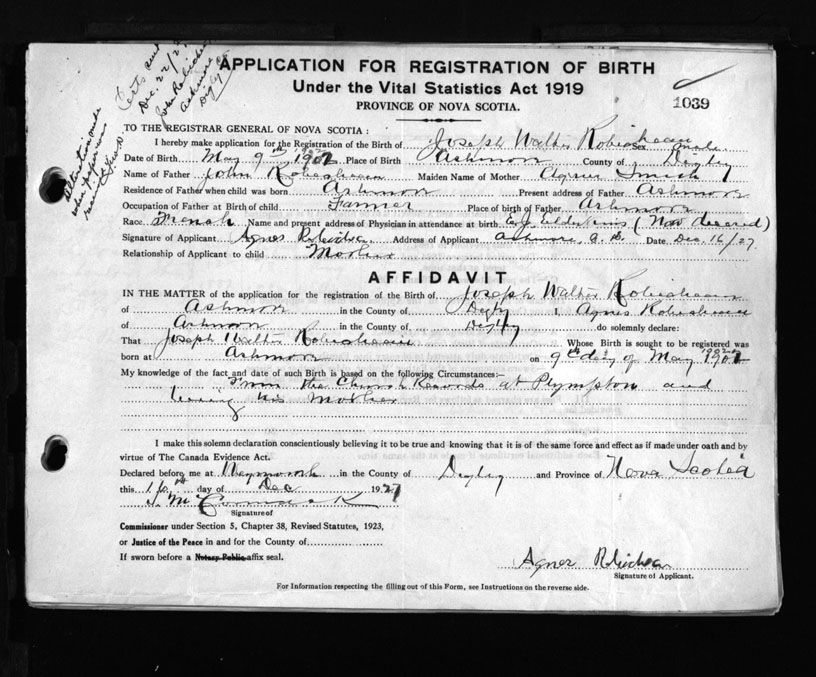 Certs sent
Dec. 22/27
John Robicheau
Ashmore
Digby Co
Alteration made
when paper was
received
APPLICATION FOR REGISTRATION OF BIRTH
Under the Vital Statistics Act 1919
PROVINCE OF NOVA SCOTIA.
1039
TO THE REGISTRAR GENERAL OF NOVA SCOTIA:
I hereby make application for the Registration of the Birth of Joseph Walter Robicheau Sex male
Date of Birth May 9th 1902 Place of Birth Ashmore County of Digby
Name of Father John Robicheau Maiden Name of Mother Agnes Smith
Residence of Father when child was born Ashmore Present address of Father Ashmore
Occupation of Father at Birth of child Farmer Place of birth of Father Ashmore
Race French Name and present address of Physician in attendance at birth E. J. Elderkins (Now deceased)
Signature of Applicant Agnes Robicheau Address of Applicant Ashmore Date Dec. 16/27.
Relationship of Applicant to child Mother
AFFIDAVIT
IN THE MATTER of the application for the registration of the Birth of Joseph Walter Robicheau
of Ashmore in the County of Digby I, Agnes Robicheau
of Ashmore in the County of Digby do solemnly declare:
That Joseph Walter Robicheau Whose Birth is sought to be registered was
born at Ashmore on 9th day of May 1902
My knowledge of the fact and date of such Birth is based on the following Circumstances:—
From the Church Records at Plympton and
being his Mother
I make this solemn declaration conscientiously believing it to be true and knowing that it is of the same force and effect as if made under oath and by
virtue of The Canada Evidence Act.
Declared before me at Weymouth in the County of Digby and Province of Nova Scotia
this 16th day of Dec 1927
Cormack
Signature of
Commissioner under Section 5, Chapter 38, Revised Statutes, 1923,
or Justice of the Peace in and for the County of
If sworn before a Notary Public affix seal.
Agnes Robicheau
Signature of Applicant.
For Information respecting the filling out of this Form, see Instructions on the reverse side.